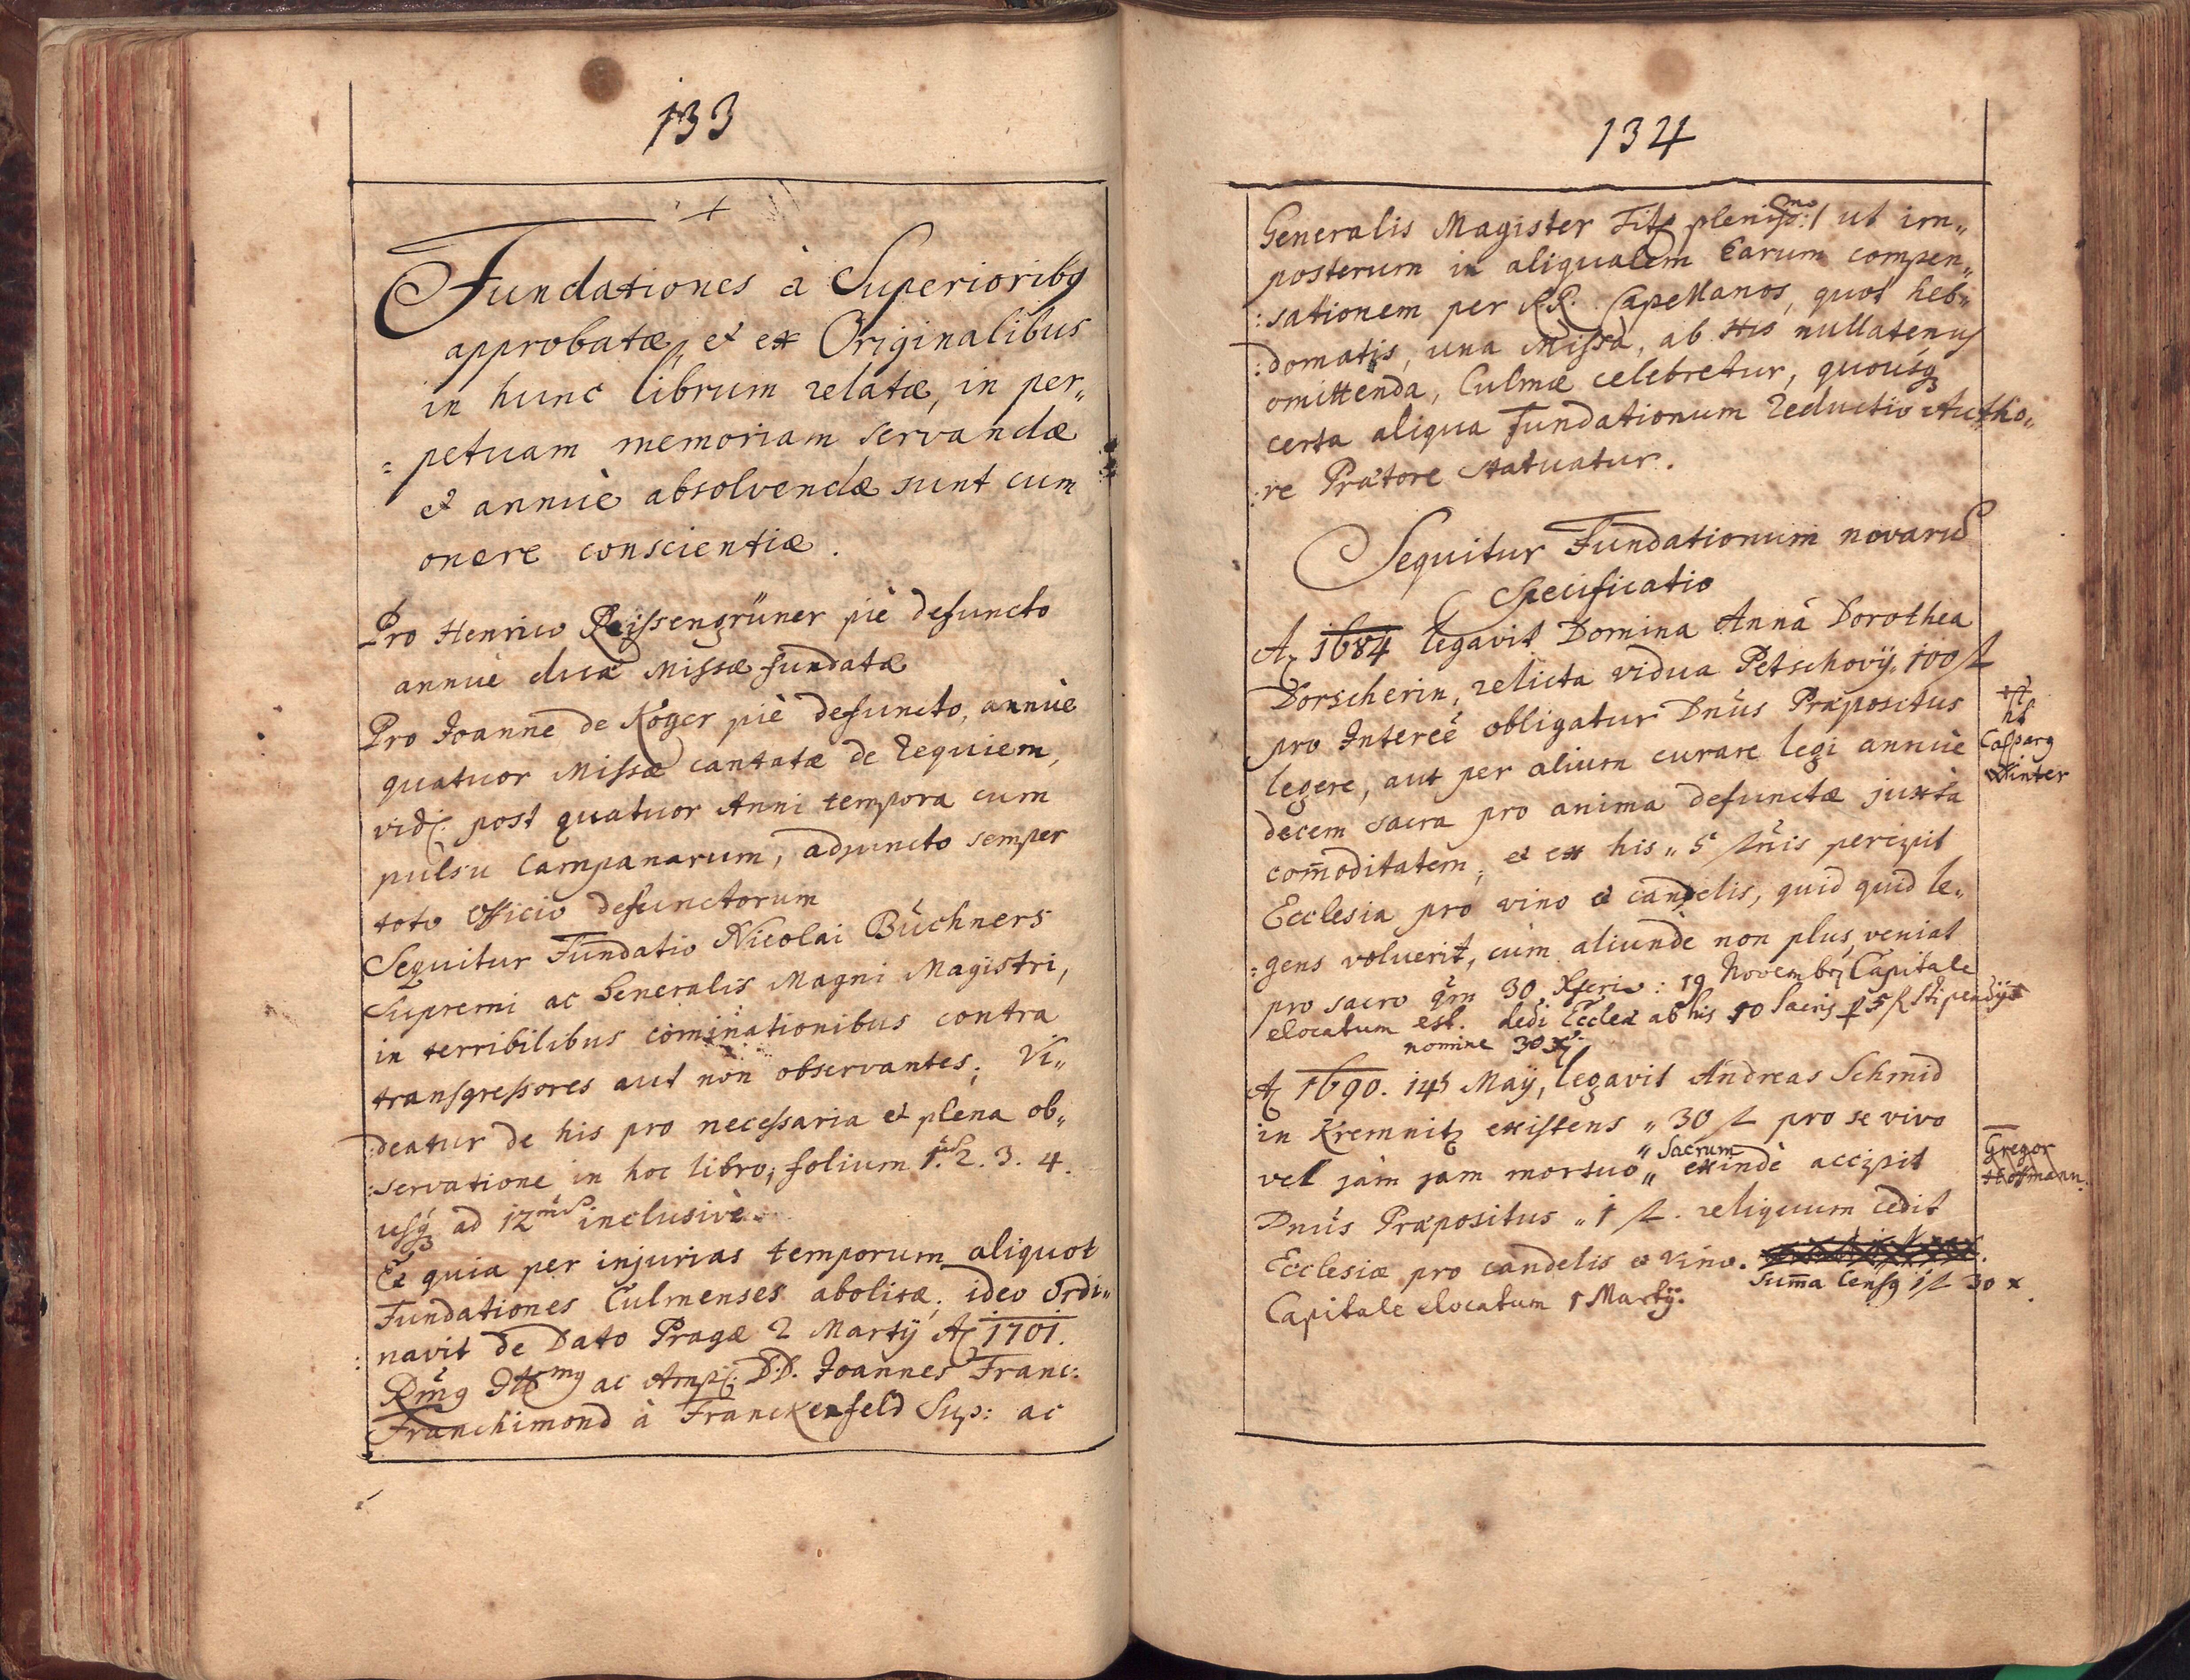 133
Fundationes à Superioribq
approbatæ, et ex Originalibus
in hunc librum relatæ, in per„
petuam memoriam servandæ
et annuè absolvendæ sunt cum
onere conscientiæ.
Pro Henrico Reissengrüner piè defuncto
annuè duæ Missæ fundatæ
Pro Joanne de Röger piè defuncto, annùe
quatuor Missæ cantatæ de Requiem,
vid: post quatuor Anni tempora cum
pulsu Campanarum, adjuncto semper
toto Officio defunctorum
Sequitur Fundatio Nicolai Büchners
Supremi ac Generalis Magni Magistri,
in terribilibus cominationibus contra
transgressores aut non observantes; Vi„
:deatur de his pro necessaria et plena ob„
:servatione in hoc libro, folium 1. 2. 3. 4.
usq; ad 12 inclusivè.
Et quia per injurias temporum aliquot
Fundationes Culmenses abolitæ; ideo Ordi„
navit de Dato Pragæ 2 Martÿ Aō 1701.
ac Ampl: D.D. Joannes Franc:
Franchimond à Franckenfeld Sup: ac
134
Generalis Magister Tit: plenissmo:/ ut im„
posterum in aliqualem Earum compen„
:sationem per RR. Capellanos, quot heb„
:domatis, una Missa, ab His nullatenus
omittenda, Culmæ celebretur, quousq;
certa aliqua Fundationum Reductio Autho„
:re Prætore statuatur.
Sequitur Fundationum novarū
Specificatio
Aō 1684 legavit Domina Anna Dorothea
Dorscherin, relicta vidua Petschovÿ 100 fl
pro Intereê obligatur Dnūs Præpositus
legere, aut per alium curare legi annùe
decem sacra pro anima defunctæ juxta
com̄oditatem; et ex his „ 5 flnis percipit
Ecclesia pro vino et candelis, quid quid le„
:gens voluerit, cùm aliundè non plus veniat
pro sacro qm 30 Xferis: 19 Novembr Capitale
elocatum est. dedi Eccleæ ab his 10 Sacris p 5 fl stipendÿs
nomine 30 xr
hb
Casparq
Winter
Aō 1690. 14 Maÿ, legavit Andreas Schmid
in Kremnitz existens „ 30 fl pro se vivo
vel jàm jam mortuo „ Sacrum „ exindè accipit
Dnūs Præpositus „ 1 fl. reliquum cedit
Ecclesiæ pro candelis et vino.
Capitale elocatum 1 Martÿ. Sum̄a Censq 1 fl 30 x
Gregor
Hoffmann.